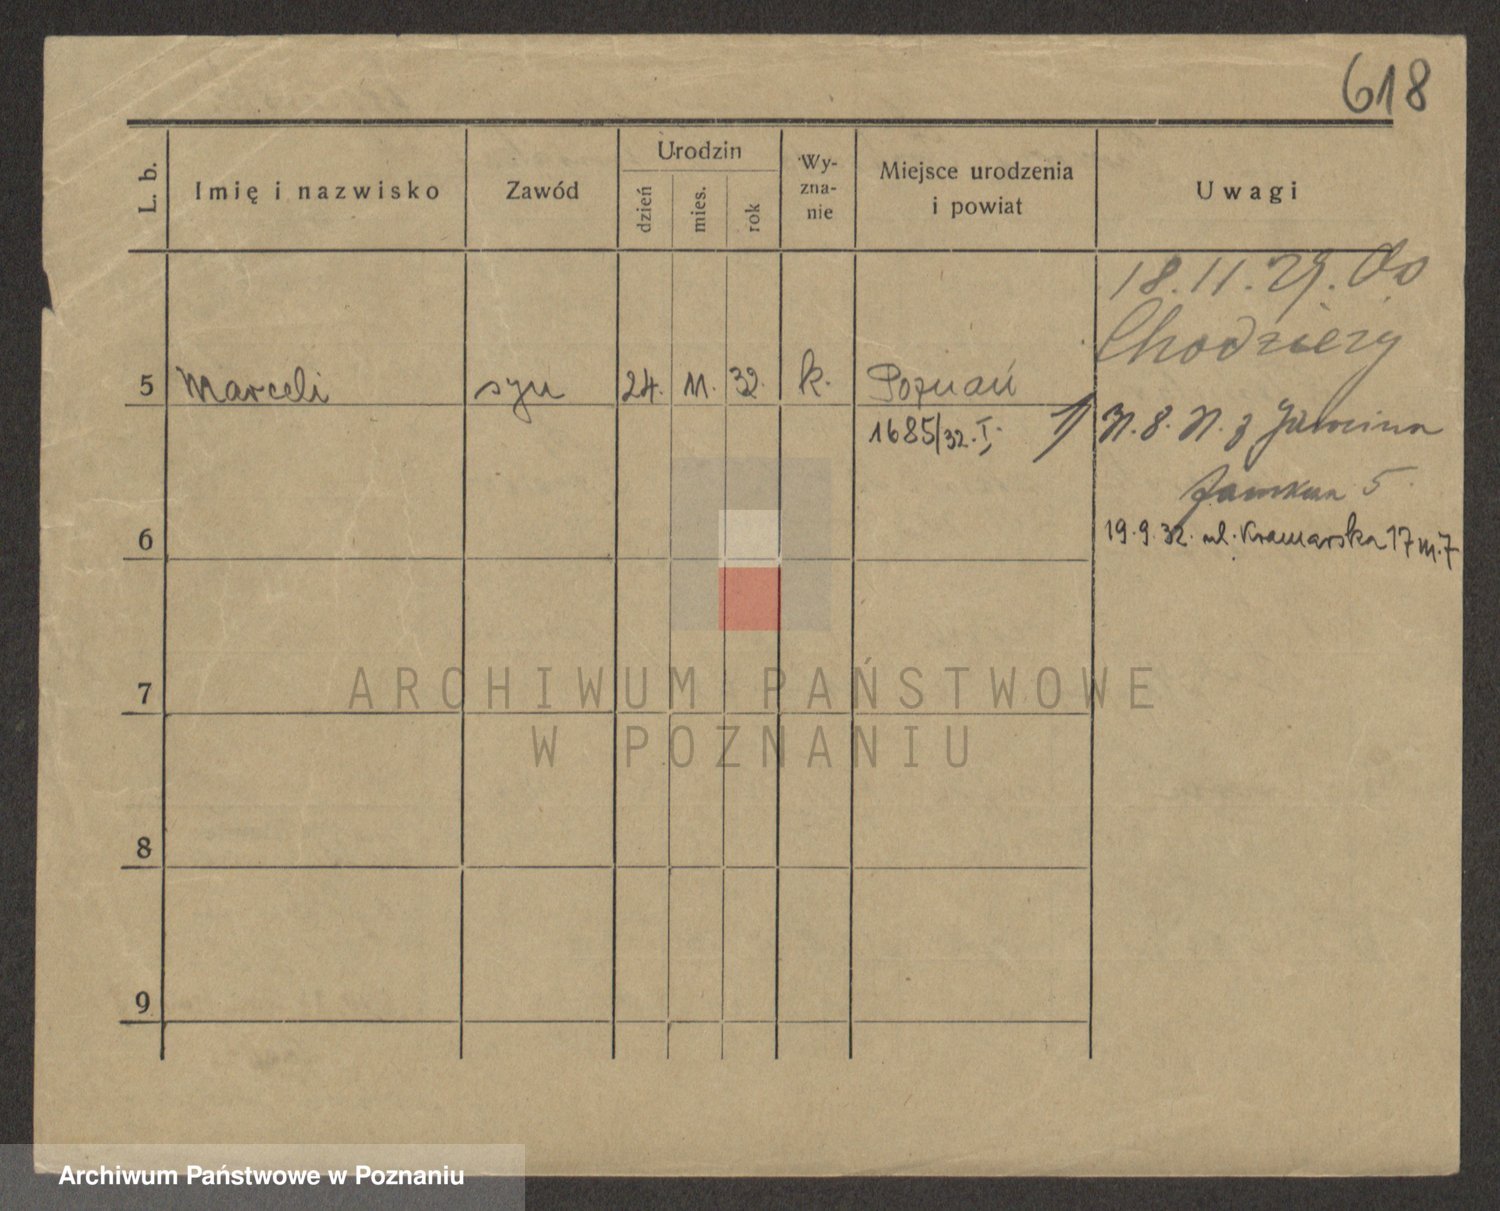 618
L. b.
Imię i nazwisko
Zawód
Urodzin
dzień
mies.
rok
Wy-
zna-
nie
Miejsce urodzenia
i powiat
Uwagi
18.11.29. do
Chodzieży
5 Marceli syn 24. 11. 32. k. Poznań
1685/32. I.
z
5
6
19.9.32. ul. Kramarska 17 m. 7
7
8
9
ARCHIWUM PAŃSTWOWE
W POZNANIU
Archiwum Państwowe w Poznaniu